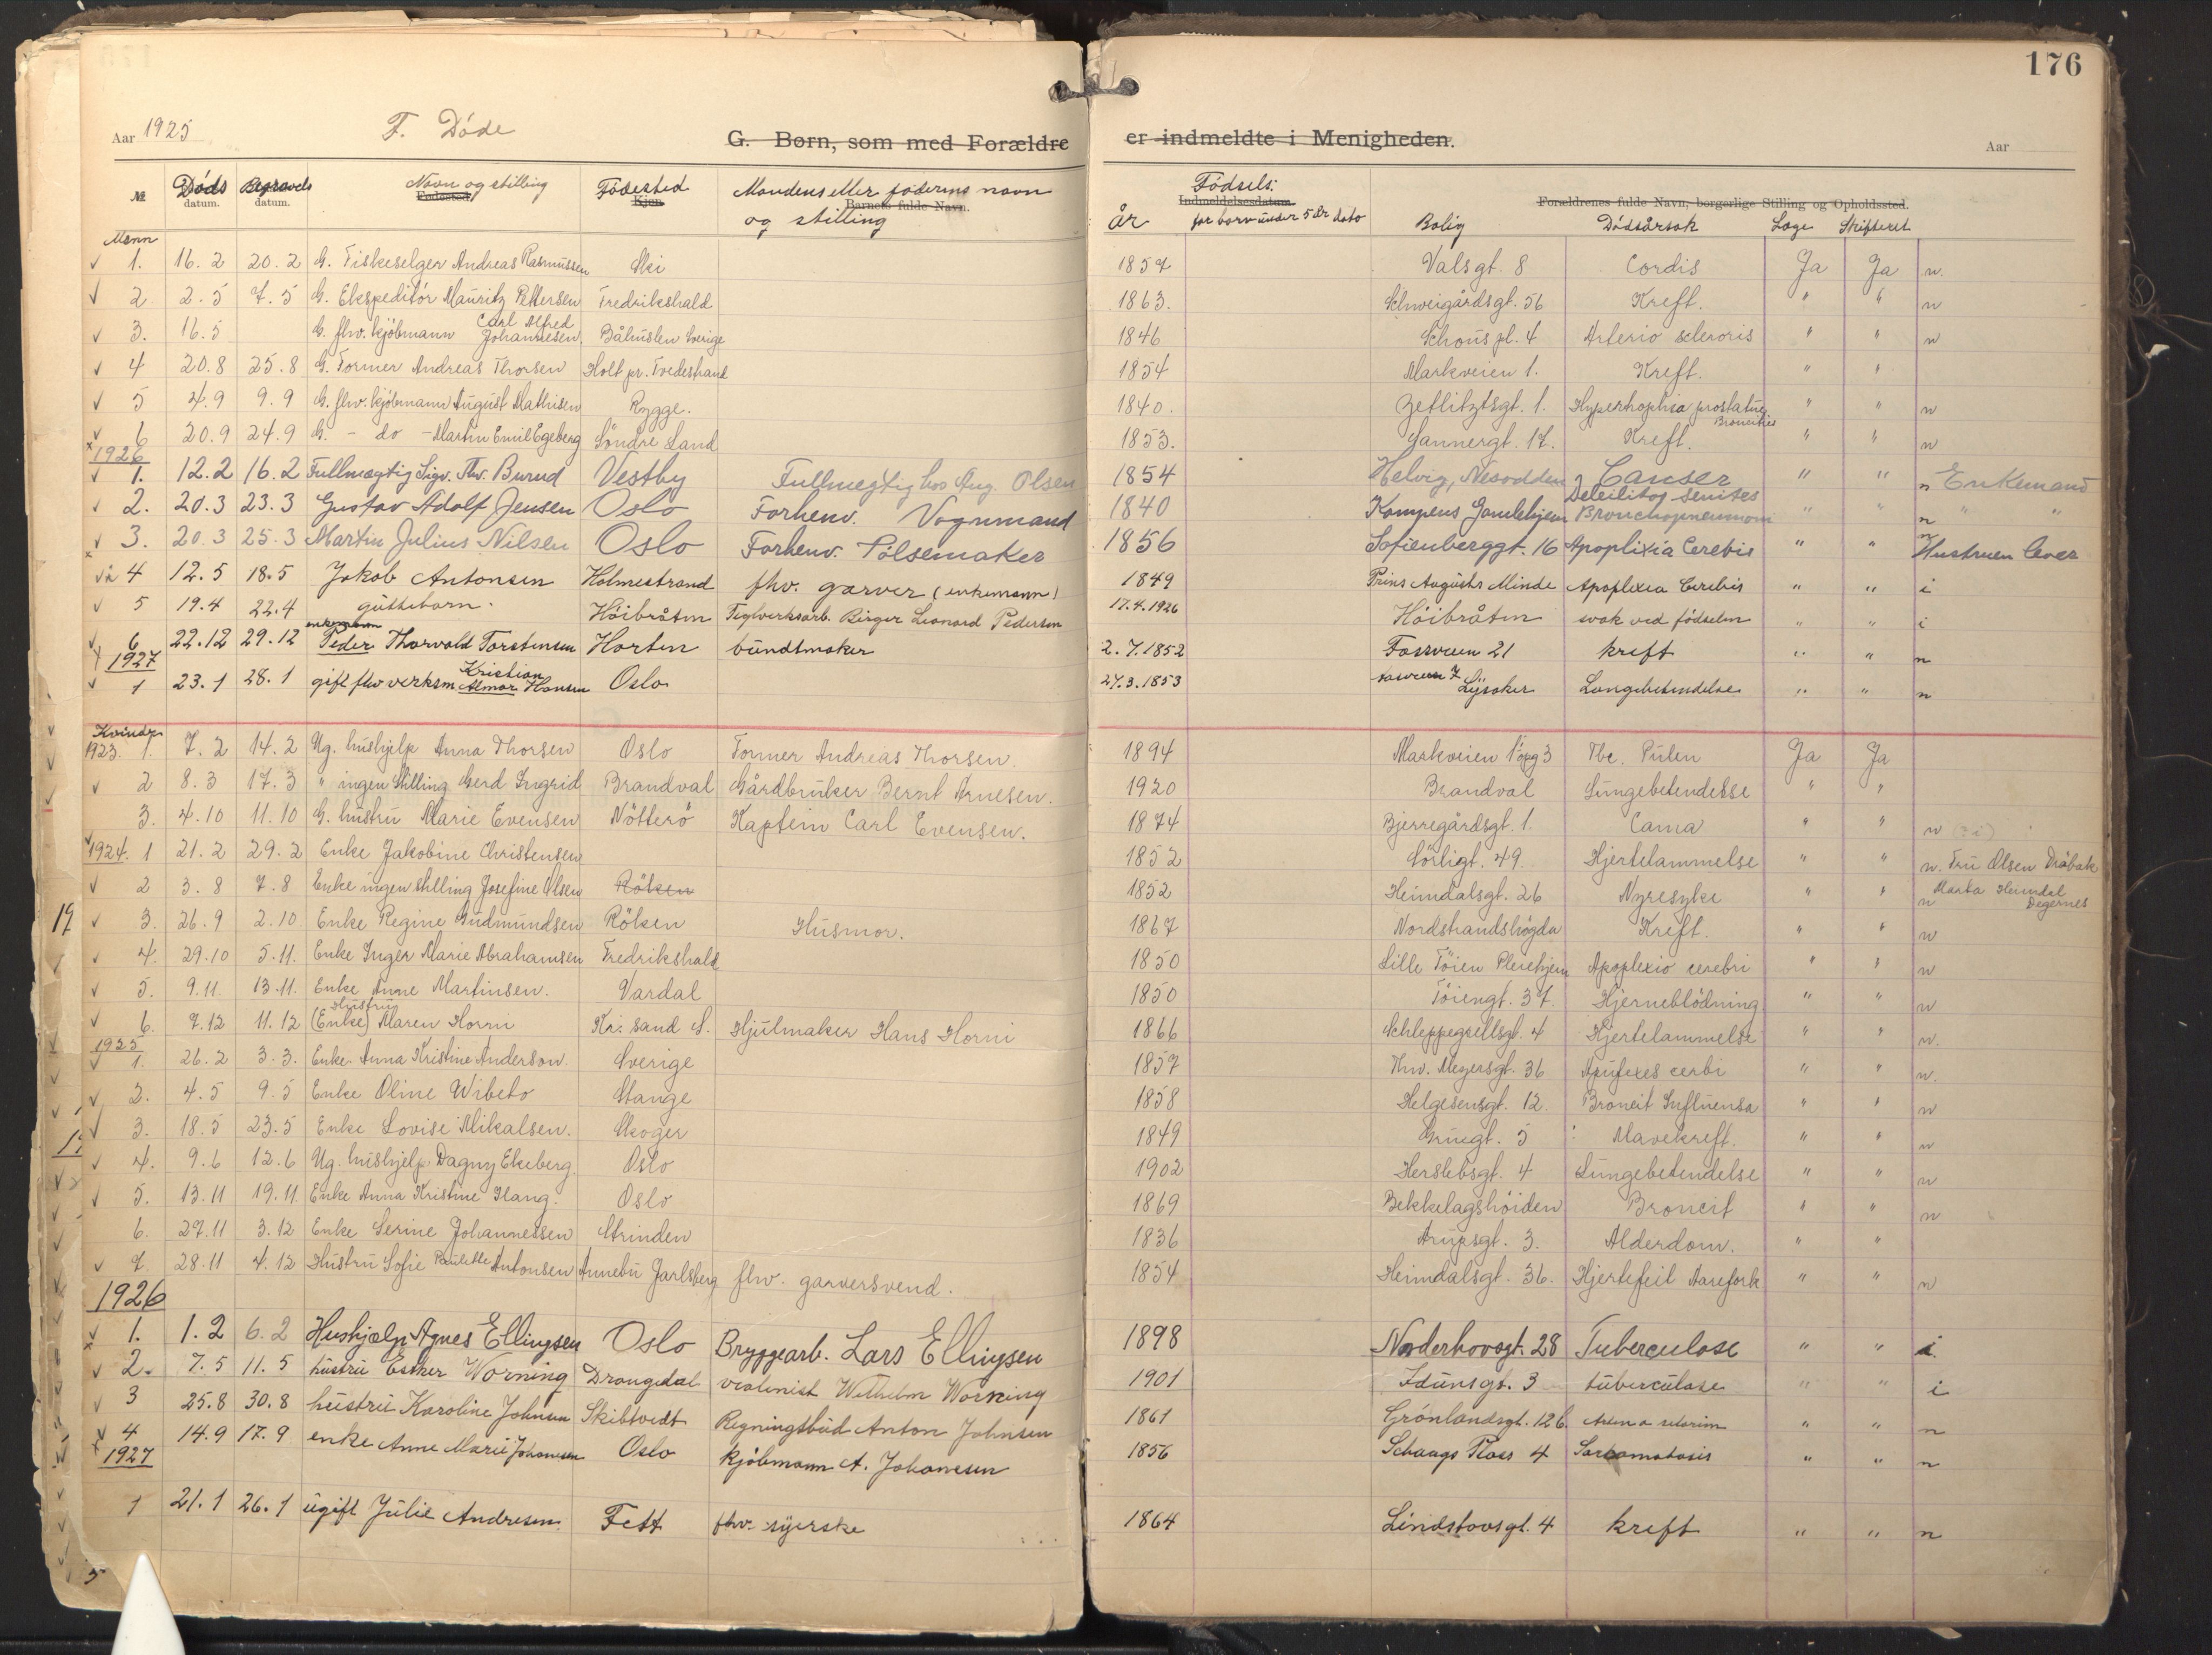 176
Aar 1925 F. Døde G. Børn, som med Forældre er indmeldte i Menigheden. Aar
№ Døds datum. Begravels datum. Navn og stilling Fødested Mandens eller faderens navn og stilling År Fødsels: for barn under 5 år dato Bolig Dødsårsak Læge Skifteret
Fødested Kjøn Barnets fulde Navn. Indmeldelsesdatum Forældrenes fulde Navn, borgerlige Stilling og Opholdssted.
Menn
1. 16.2 20.2 G. Fiskeselger Andreas Rasmussen Ski 1857 Valsgt. 8 Cordis Ja Ja n.
2 2.5 7.5 G. Ekspeditør Mauritz Pettersen Fredrikshald 1863. Schweigårdsgt. 56 Kreft. " " n
3. 16.5 G. fhv. kjøbmann Carl Alfred Johannesen. Båhuslen Sverige 1846 Schous pl. 4 Arterio scleroris " " n
4 20.8 25.8 G. Former Andreas Thorsen Holt pr. Tvedestrand 1854 Markveien 1. Kreft. " "
5 4.9 9.9 G. fhv. kjøbmann August Mathisen Rygge. 1840. Zetlitztsgt. 1. Hyperthophia prostatue. " " n
6 20.9 24.9 G. - do - Martin Emil Egeberg Søndre Land 1853. Sannergt. 17. Kreft. " " n
1926
1. 12.2 16.2 Fullmægtig Sigv. Thv. Burud Vestby Fullmegtig hos Aug. Olsen 1854 Helvig, Nesodden Canser " " n Enkemand
2. 20.3 23.3 Gustav Adolf Jensen Oslo Forhenv. Vognmand 1840 Kampens Gamlehjem Bronchopneumoni " " n " "
3. 20.3 25.3 Martin Julius Nilsen Oslo Forhenv. Pølsemaker 1856 Sofienberggt. 16 Apoplixia Cerebis " " n Hustruen lever
4 12.5 18.5 Jakob Antonsen Holmestrand fhv. garver (enkemann) 1849 Prins Augusts Minde Apoplexia Cerebris " " i
5 19.4 22.4 guttebarn. Høibråten Teglverksarb. Birger Leonard Pedersen 17.4.1926 Høibråten svak ved fødselen " " i
6 22.12 29.12 enkemann Peder Thorvald Torstensen Horten bundtmaker 2.7.1852 Fossveien 21 kreft " " n
1927
1 23.1 28.1 gift fhv verksm Kristian Almar Hansen Oslo 27.3.1853 Lysaker Lungebetendelse " " n
Kvinder
1923. 1. 7.2 14.2 Ug. hushjelp Anna Thorsen Oslo Former Andreas Thorsen. 1894 Markveien 1 opg 3 Tbc. Pulen Ja Ja
2 8.3 17.3 " ingen Stilling Gerd Ingrid Brandval Gårdbruker Bernt Arnesen. 1920 Brandval Lungebetendelse " "
3. 4.10 11.10 G. hustru Marie Evensen Nøtterø Kaptein Carl Evensen. 1874 Bjerregårdsgt. 1. Cama " " n
1924. 1 21.2 29.2 Enke Jakobine Christensen 1852 Sørligt. 49. Hjertelammelse " " n. Fru Olsen Drøbak
2 3.8 7.8 Enke ingen stilling Josefine Olsen Røken 1852 Heimdalsgt. 26 Nyresyke " " n Marka Heimdal Degernes
3. 26.9 2.10 Enke Regine Gudmundsen Røken Husmor. 1867 Nordstrandshøgda Kreft. " " n
4. 29.10 5.11. Enke Inger Marie Abrahamsen Fredrikshald 1850 Lille Tøien Pleiehjem Apoplexio cerebri " " n
5. 9.11. 13.11. Enke Anne Martinsen. Vardal 1850 Tøiengt. 37. Hjerneblødning " " n
6. 7.12 11.12 (Enke) Hustru Maren Horni Kr: sand S. Hjulmaker Hans Horni 1866 Schleppegrellsgt. 4 Hjertelammelse " " n.
1925
1. 26.2 3.3. Enke Anna Kristine Anderson. Sverige 1857 Thv. Meyersgt. 36 Apufexes cerbi " " n.
2. 4.5 9.5 Enke Oline Wibeto Stange 1858 Helgesensgt. 12. Broncit Influensa " " n
3. 18.5 23.5 Enke Lovise Mikalsen. Skoger 1849 Griugt. 5 Mavekreft. " " n
4. 9.6 12.6 Ug. hushjelp. Dagny Ekeberg. Oslo 1902 Herslebsgt. 4 Lungebetendelse " " n
5. 13.11 19.11. Enke Anna Kristine Haug. Oslo 1869 Bekkelagshøiden Broncit " " n
6. 27.11 3.12 Enke Serine Johannessen Strinden 1836 Arupsgt. 3. Alderdom. " "
7. 28.11 4.12 Hustru Sofie Paulette Antonsen Annebu Jarlsberg fhv. garversvend. 1854 Heimdalsgt. 36. Hjertefeil Aarefork " " n
1926
1. 1.2 6.2 Hushjælp Agnes Ellingsen Oslo Bryggearb. Lars Ellingsen 1898 Norderhovsgt. 28 Tuberculose " " i
2. 7.5 11.5 hustru Esther Worning Drangedal violinist Wilhelm Worning 1901 Idunsgt. 3 tuberculose " " i
3 25.8 30.8 hustru Karoline Johnsen Skibtvedt Regningsbud Anton Johnsen 1861 Grønlandsgt. 12 b. " " n
4 14.9 17.9 enke Anne Marie Johannesen Oslo kjøbmann A. Johanesen 1856 Schaugs Plass 4 Sarcomatosis " " n
1927
1 21.1 26.1 ugift Julie Andresen Fett fhv. syerske 1864 Lindstowsgt. 4 kreft " " n